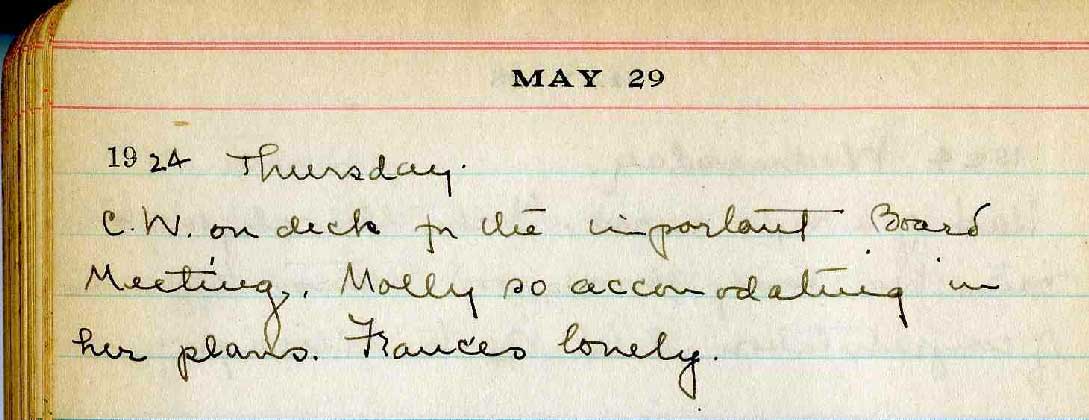 MAY 29
1924 Thursday.
C.W. on deck for the important Board
Meeting. Molly so accomodating in
her plans. Frances lonely.